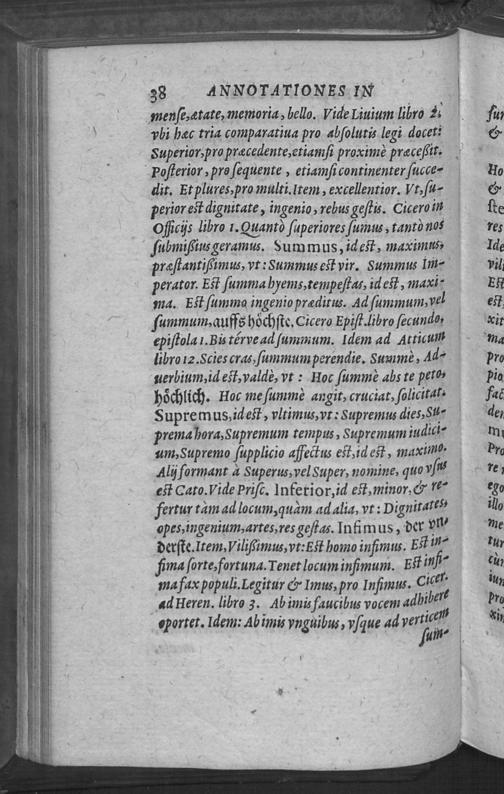 38 ANNOTATIONES IN
menſe, ætate, memoria, bello. Vide Liuium libro 2.
vbi hæc tria comparatiua pro abſolutis legi docet:
Superior, pro præcedente, etiamſi proximè præceßit.
Poſterior, pro ſequente, etiamſi continenter ſucce-
dit. Et plures, pro multi. Item, excellentior. Vt, ſu-
perior est dignitate, ingenio, rebus geſtis. Cicero in
Officijs libro 1. Quantò ſuperiores ſumus, tantò nos
ſubmißius geramus. Summus, id est, maximus,
præſtantißimus, vt: Summus est vir. Summus Im-
perator. Eſt ſumma hyems, tempeſtas, id est, maxi-
ma. Eſt ſummo ingenio præditus. Ad ſummum, vel
ſummum, auffs höchſte. Cicero Epiſt. libro ſecundo,
epiſtola 1. Bis térve ad ſummum. Idem ad Atticum
libro 12. Scies cras, ſummum perendie. Summè, Ad-
uerbium, id est, valdè, vt: Hoc ſummè abs te peto,
höchlich. Hoc me ſummè angit, cruciat, ſolicitat.
Supremus, id est, vltimus, vt: Supremus dies, Su-
prema hora, Supremum tempus, Supremum iudici-
um, Supremo ſupplicio affectus est, id est, maximo.
Alij formant à Superus, vel Super, nomine, quo vſus
est Cato. Vide Priſc. Inferior, id est, minor, & re-
fertur tàm ad locum, quàm ad alia, vt: Dignitates,
opes, ingenium, artes, res geſtas. Infimus, der vn-
derſte. Item, Vilißimus, vt: Eſt homo infimus. Eſt in-
fima ſorte, fortuna. Tenet locum infimum. Eſt infi-
ma fax populi. Legitur & Imus, pro Infimus. Cicer.
ad Heren. libro 3. Ab imis faucibus vocem adhibere
oportet. Idem: Ab imis vnguibus, vſque ad verticem
ſum-